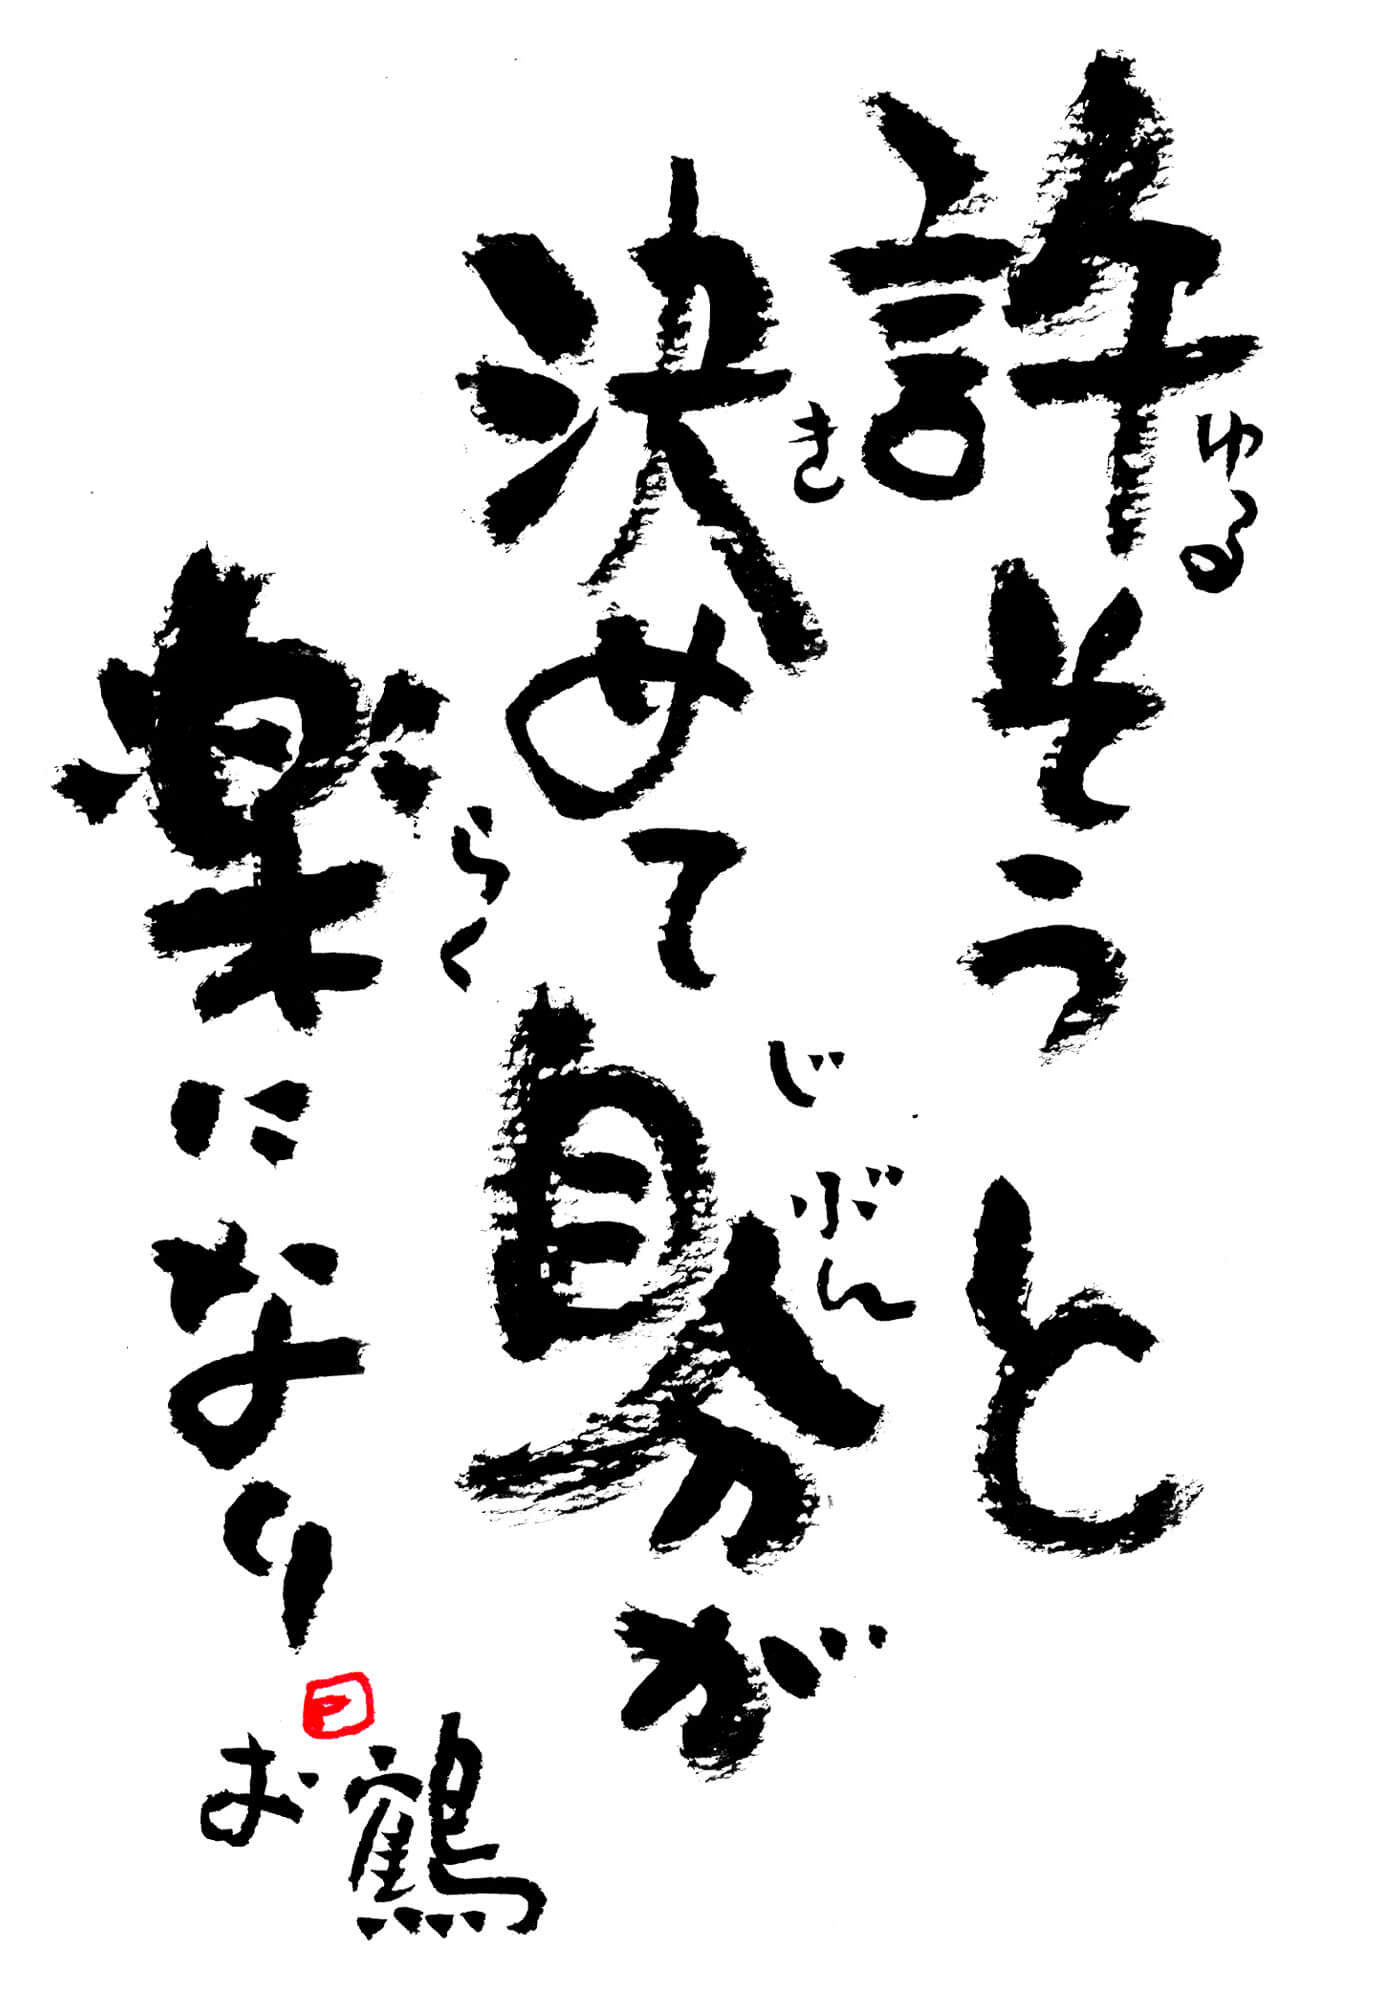 許そうと
ゆる
決めて自分が
き
じぶん
楽になり
らく
お鶴